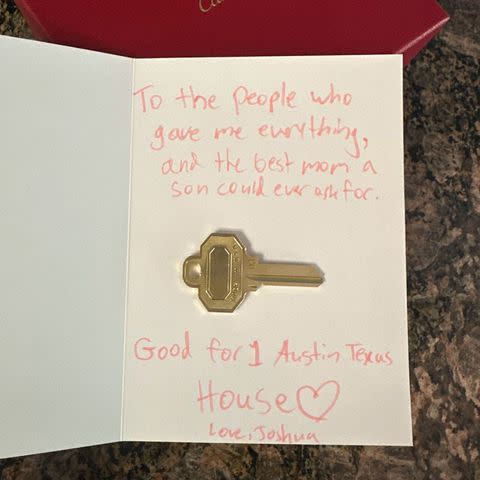 To the people who
gave me everything,
and the best mom a
son could ever ask for.
Good for 1 Austin Texas
House♡
Love, Joshua